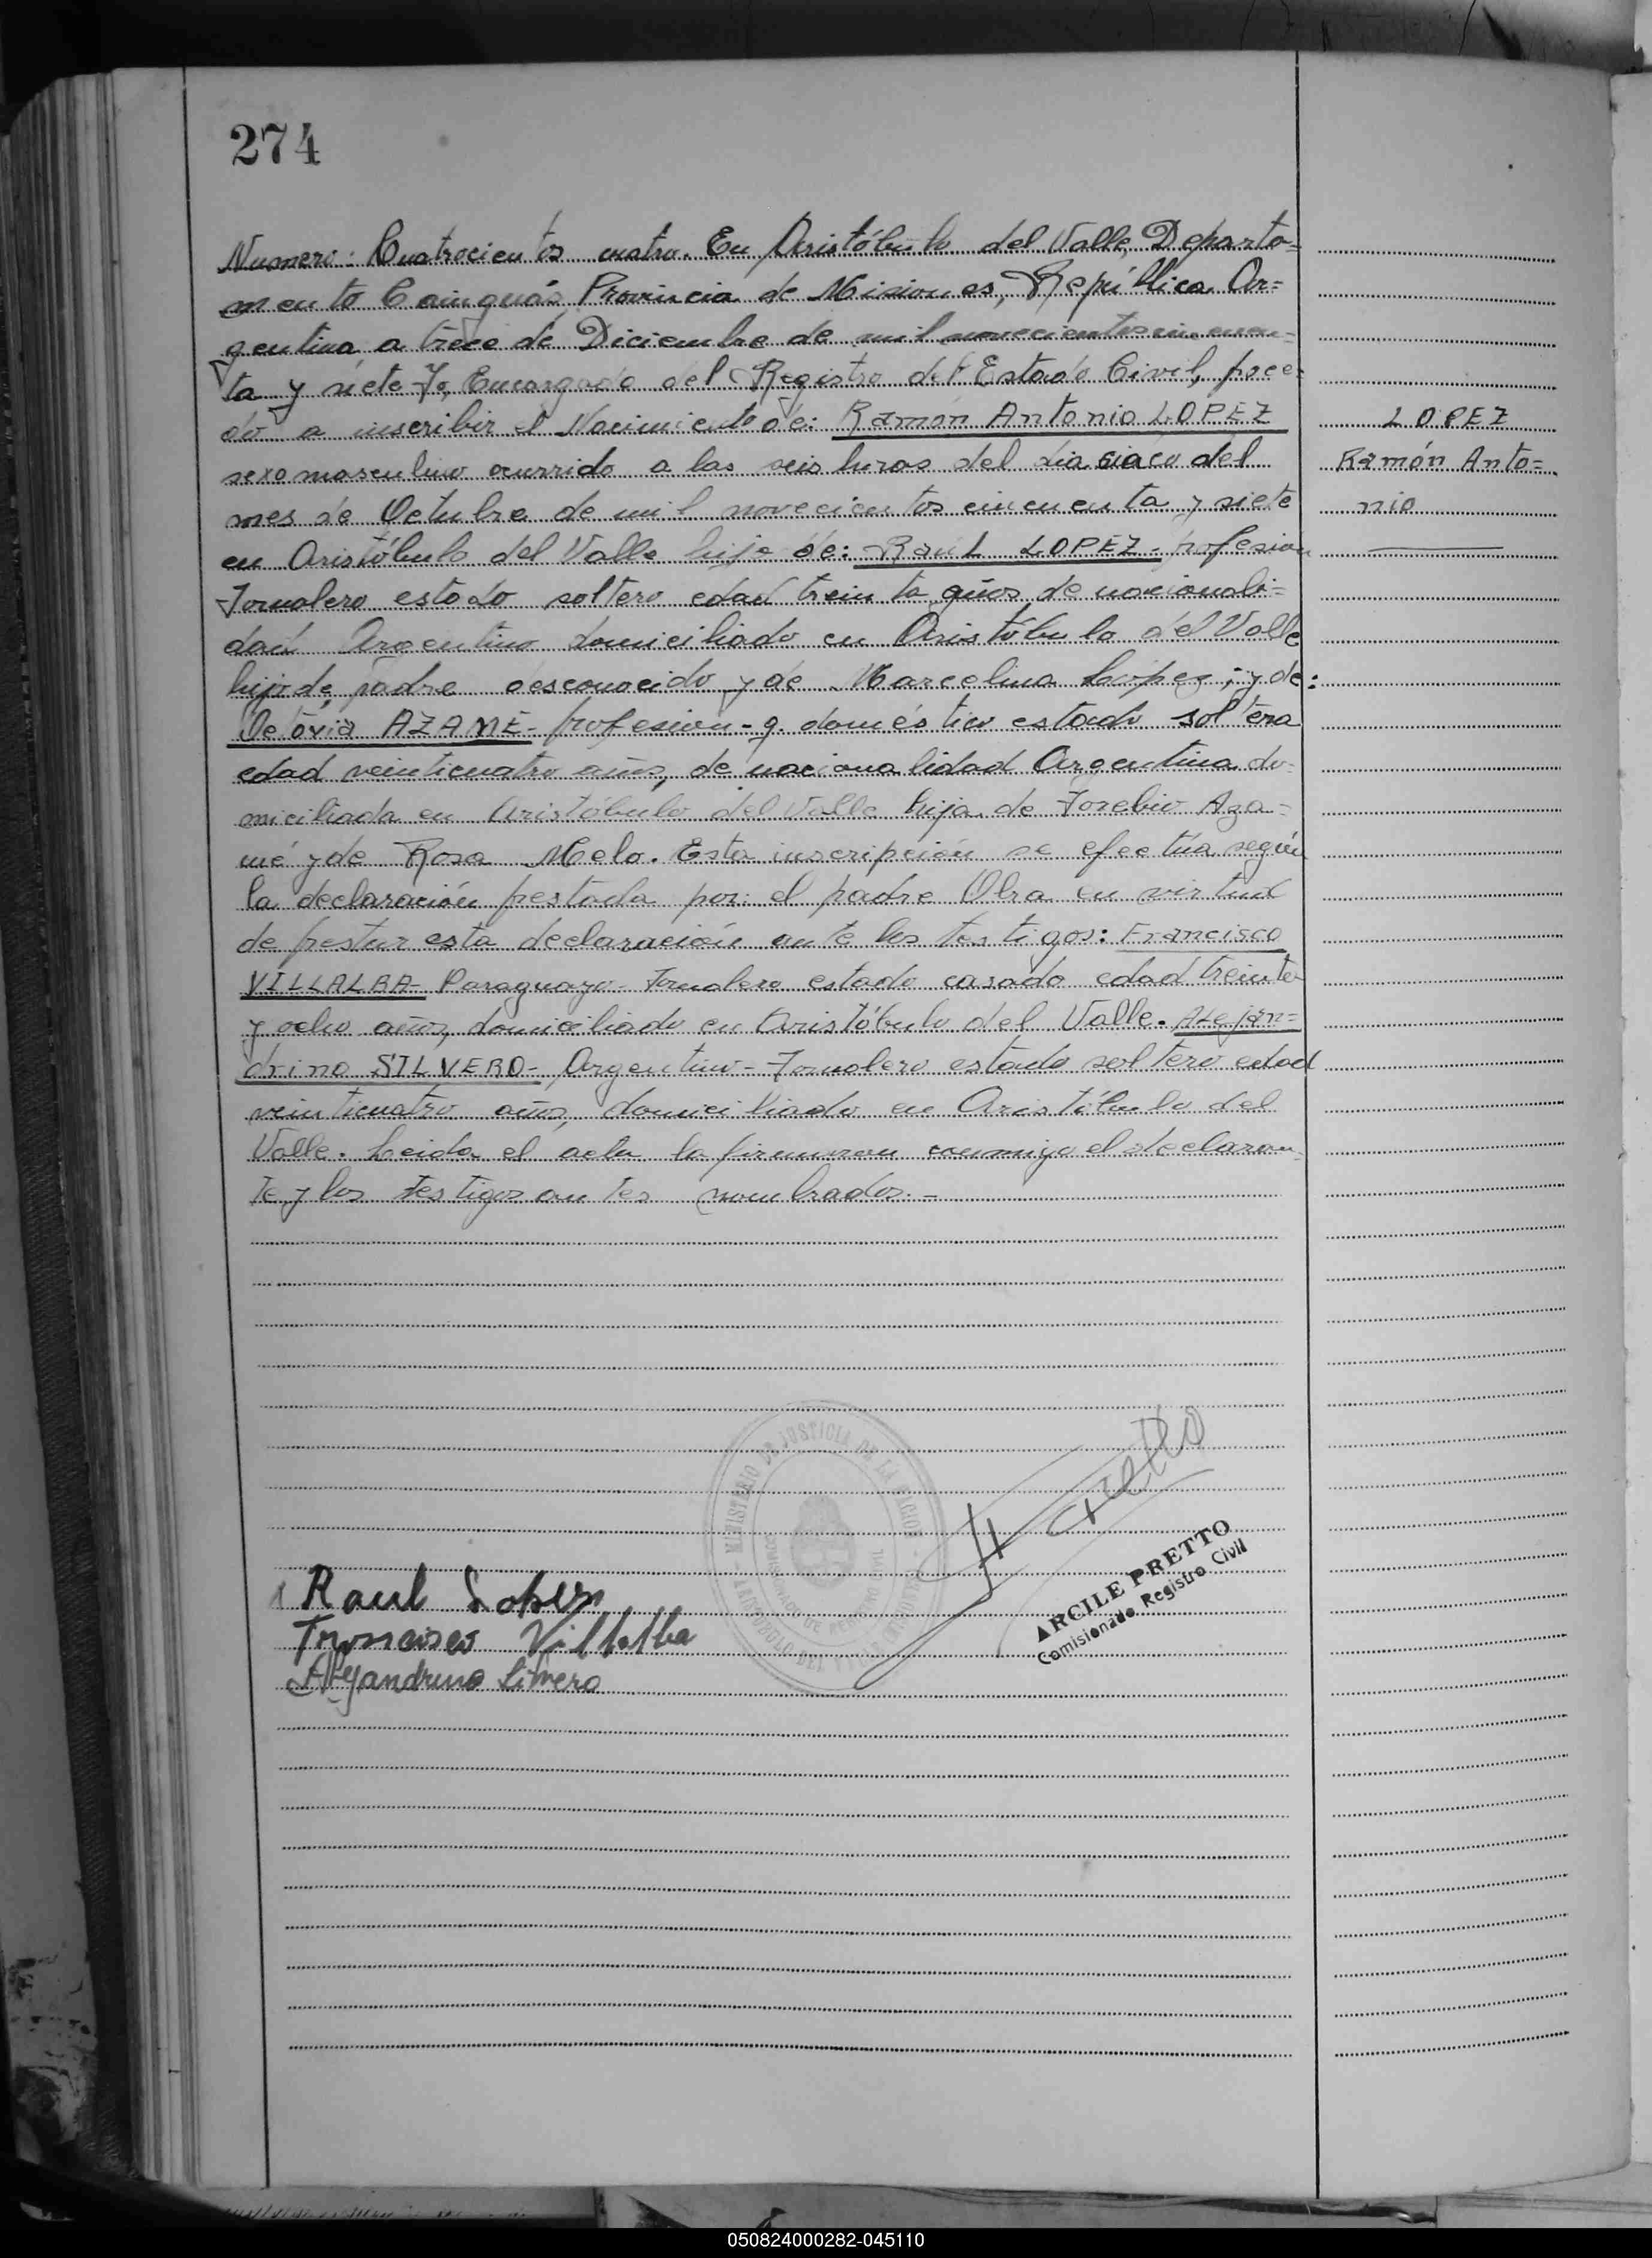 274
Numero: Cuatrocientos cuatro. En Aristóbulo del Valle, Departa=
mento Cainguás, Provincia de Misiones, República Ar=
gentina a trece de Diciembre de mil novecientos cincuen=
ta y siete Yo, Encargado del Registro del Estado Civil, proce=
do a inscribir el Nacimiento de: Ramón Antonio LOPEZ
sexo masculino ocurrido a las seis horas del dia cinco del
mes de Octubre de mil novecientos cincuenta y siete
en Aristóbulo del Valle hijo de: Raúl LOPEZ- profesion
Jornalero estado soltero edad treinta años de nacionali=
dad Argentino domiciliado en Aristóbulo del Valle
hijo de padre desconocido y de Marcelina López; y de:
AZAME- profesion- q. doméstico estado soltera
edad veinticuatro años, de nacionalidad Argentina do=
miciliada en Aristóbulo del Valle hija de Torebio Aza=
mé y de Rosa Melo. Esta inscripción se efectúa según
la declaración prestada por: el padre Obra en virtud
de prestar esta declaración ante los testigos: Francisco
VILLALBA- Paraguayo- Jornalero estado casado edad treinta
y ocho años, domiciliado en Aristóbulo del Valle. Alejan=
drino SILVERO- Argentino- Jornalero estado soltero edad
veinticuatro años, domiciliado en Aristóbulo del
Valle. Leida el acta la firmaron conmigo el declaran=
te y los testigos antes nombrados.-
LOPEZ
Ramón Anto=
nio
MINISTERIO DE JUSTICIA DE LA NACION
ARISTOBULO DEL VALLE
Raul Lopez
Francisco Villalba
Alejandrino Silvero
ARCILE PRETTO
Comisionado Registro Civil
050824000282-045110